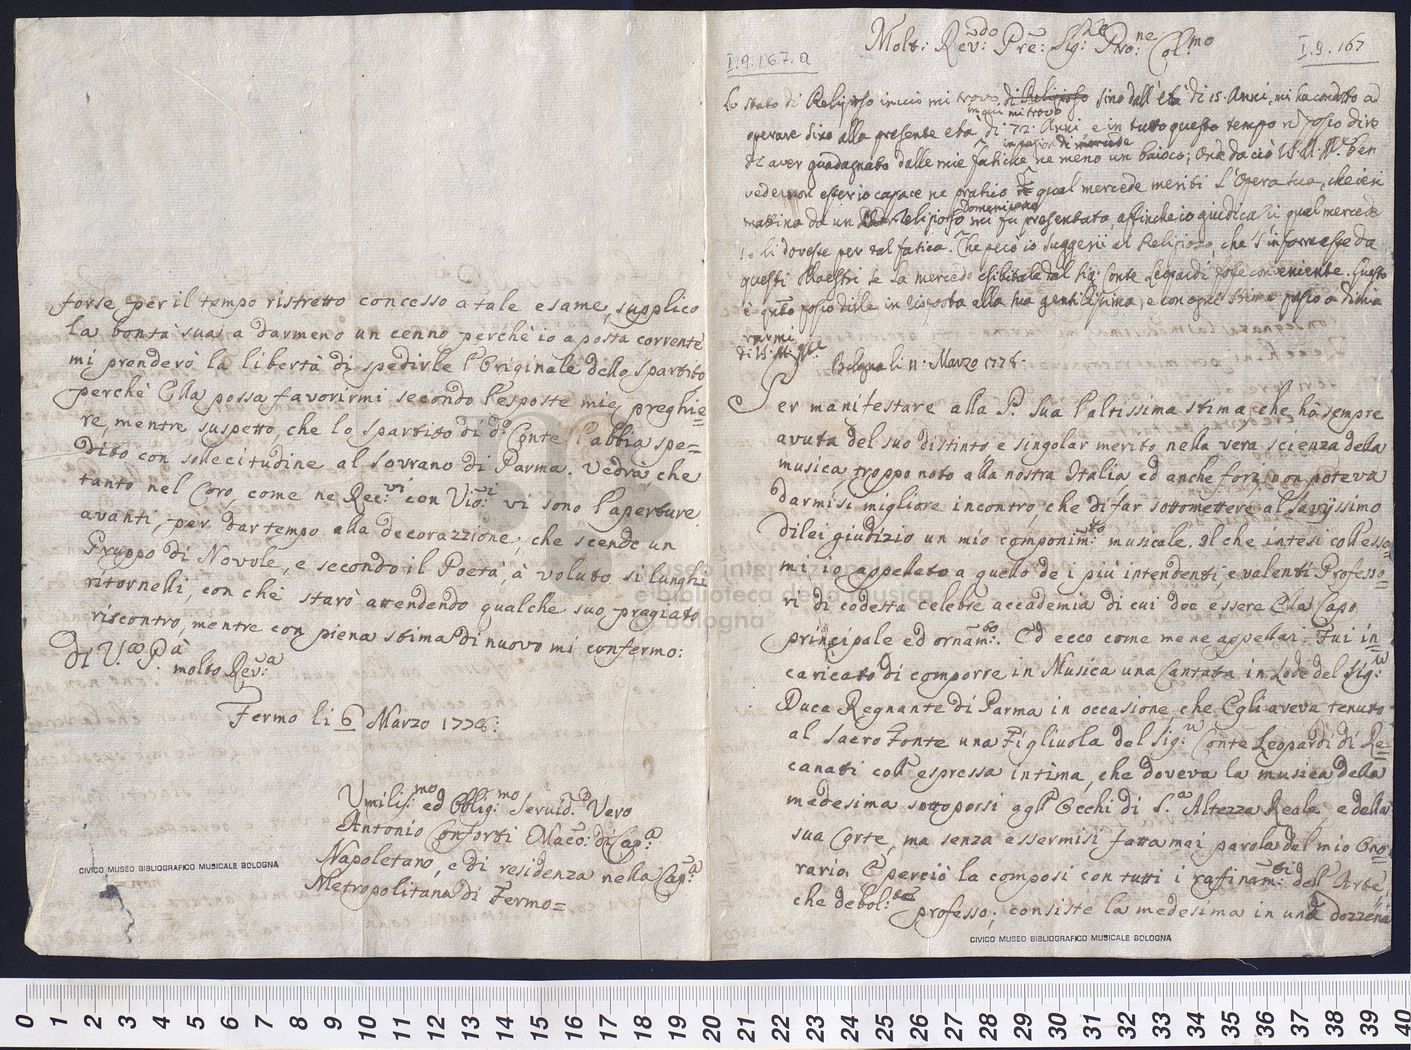 Molt: Rev:do Pre: Sig:re Pno:ne Col:mo
I.9.167.a
I.9.167
lo stato di Religioso in cui mi trovo di Religioso sino dall'età di 15. Anni, mi ha condotto ad
in cui mi trovo
operare sino alla presente età di 72. Anni, e in tutto questo tempo posso dire
di aver guadagnato dalle mie fatiche ne meno un baioco; Onde da ciò V.S. M. R. ben
vede non esser io capace ne pratico qual mercede meriti l'Opera sua, che ieri
mattina da un Religioso Domenicano mi fu presentata, affinche io giudicassi qual mercede
se li dovesse per tal fatica. Che perciò io suggerii al Religioso, che s'informasse da
questi Maestri se la mercede esibitale dal Sig: Conte Leopardi fosse conveniente. Questo
è qto posso dirle in risposta alla sua gentilissima, e con ogni stima passo a dichia
rarmi
di V.S. M. Rda
Bologna li 11. Marzo 1778.
Per manifestare alla P. Sua l'altissima stima, che hà sempre
avuta del suo distinto, e singolar merito nella vera scienza della
musica, troppo noto alla nostra Italia ed anche fori, non poteva
darmisi migliore incontro, che di far sottomettere al savijssimo
di lei giudizio un mio componim:to musicale. Il che intesi coll'esso-
mi, io appellato a quello de i più intendenti e valenti Professo=
ri di codesta celebre accademia di cui dee essere Ella Capo
principale ed ornam:to. Ed ecco come mene appellai. Fui in=
caricato di comporre in Musica una Cantata in Lode del Sig:r
Duca Regnante di Parma in occasione, che Egli aveva tenuto
al Sacro Fonte una Figliuola del Sig:r Conte Leopardi di Re=
canati coll'espressa intima, che doveva la musica della
medesima sottoporsi agl'Occhi di S.a Altezza Reale, e della
sua Corte, ma senza essermisi fatta mai parola del mio Ono=
rario. E perciò la composi con tutti i raffinam:ti dell'Arte,
che debol:te professo; consiste la medesima in una dozzena
forse per il tempo ristretto concesso a tale esame, supplico
la bontà sua a darmeno un cenno perchè io a posta corrente
mi prenderò la libertà di spedirle l'Originale dello spartito
perchè Ella possa favorirmi secondo l'esposte mie preghie=
re, mentre suspetto, che lo spartito di do Conte l'abbia spe=
dito con sollecitudine al Sovrano di Parma. Vedrà, che
tanto nel Coro, come ne Rec:vi con Vio:ni vi sono l'aperture
avanti, per dar tempo alla decorazzione, che scende un
Gruppo di Nuvole, e secondo il Poeta, à voluto si lunghi
ritornelli, con chè starò attendendo qualche suo pregiato
riscontro, mentre con piena stima di nuovo mi confermo:
Di V.a P.à
molto Rev:a
Fermo li 6 Marzo 1778:
Umilis:mo ed Obblig:mo Servid:r Vero
Antonio Conforti Maeo: di Cap:a
Napoletano, e di residenza nella Cap:a
Metropolitana di Fermo=
CIVICO MUSEO BIBLIOGRAFICO MUSICALE BOLOGNA
CIVICO MUSEO BIBLIOGRAFICO MUSICALE BOLOGNA
museo internazionale
e biblioteca della musica
di bologna
0 1 2 3 4 5 6 7 8 9 10 11 12 13 14 15 16 17 18 19 20 21 22 23 24 25 26 27 28 29 30 31 32 33 34 35 36 37 38 39 40